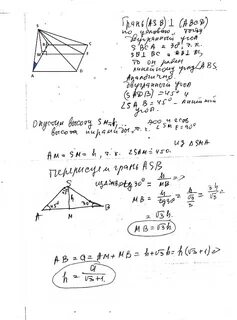 Грань (ASB) ⊥ (ABCD)
по условию, тогда
двугранный угол
SBCA = 30°, т.к.
SB ⊥ BC и AB ⊥ BC,
то он равен
линейному углу ∠ABS.
Аналогично
двугранный угол
(SADB) = 45° и
∠SAB = 45° - линейный
угол.
Опустим высоту SM=h,
высота пирамиды, т.к. ∠SMF = 90°
из △SMA
AM = SM = h, т.к. ∠SAM = 45°.
Перерисуем грань ASB
S
45° h 30°
A M B
tg30° = h/MB =>
MB = h/tg30° = h/(√3/3) = 3h/√3
= √3h.
MB = √3h
AB = a = AM + MB = h + √3h = h(√3+1) =>
h = a/(√3+1).